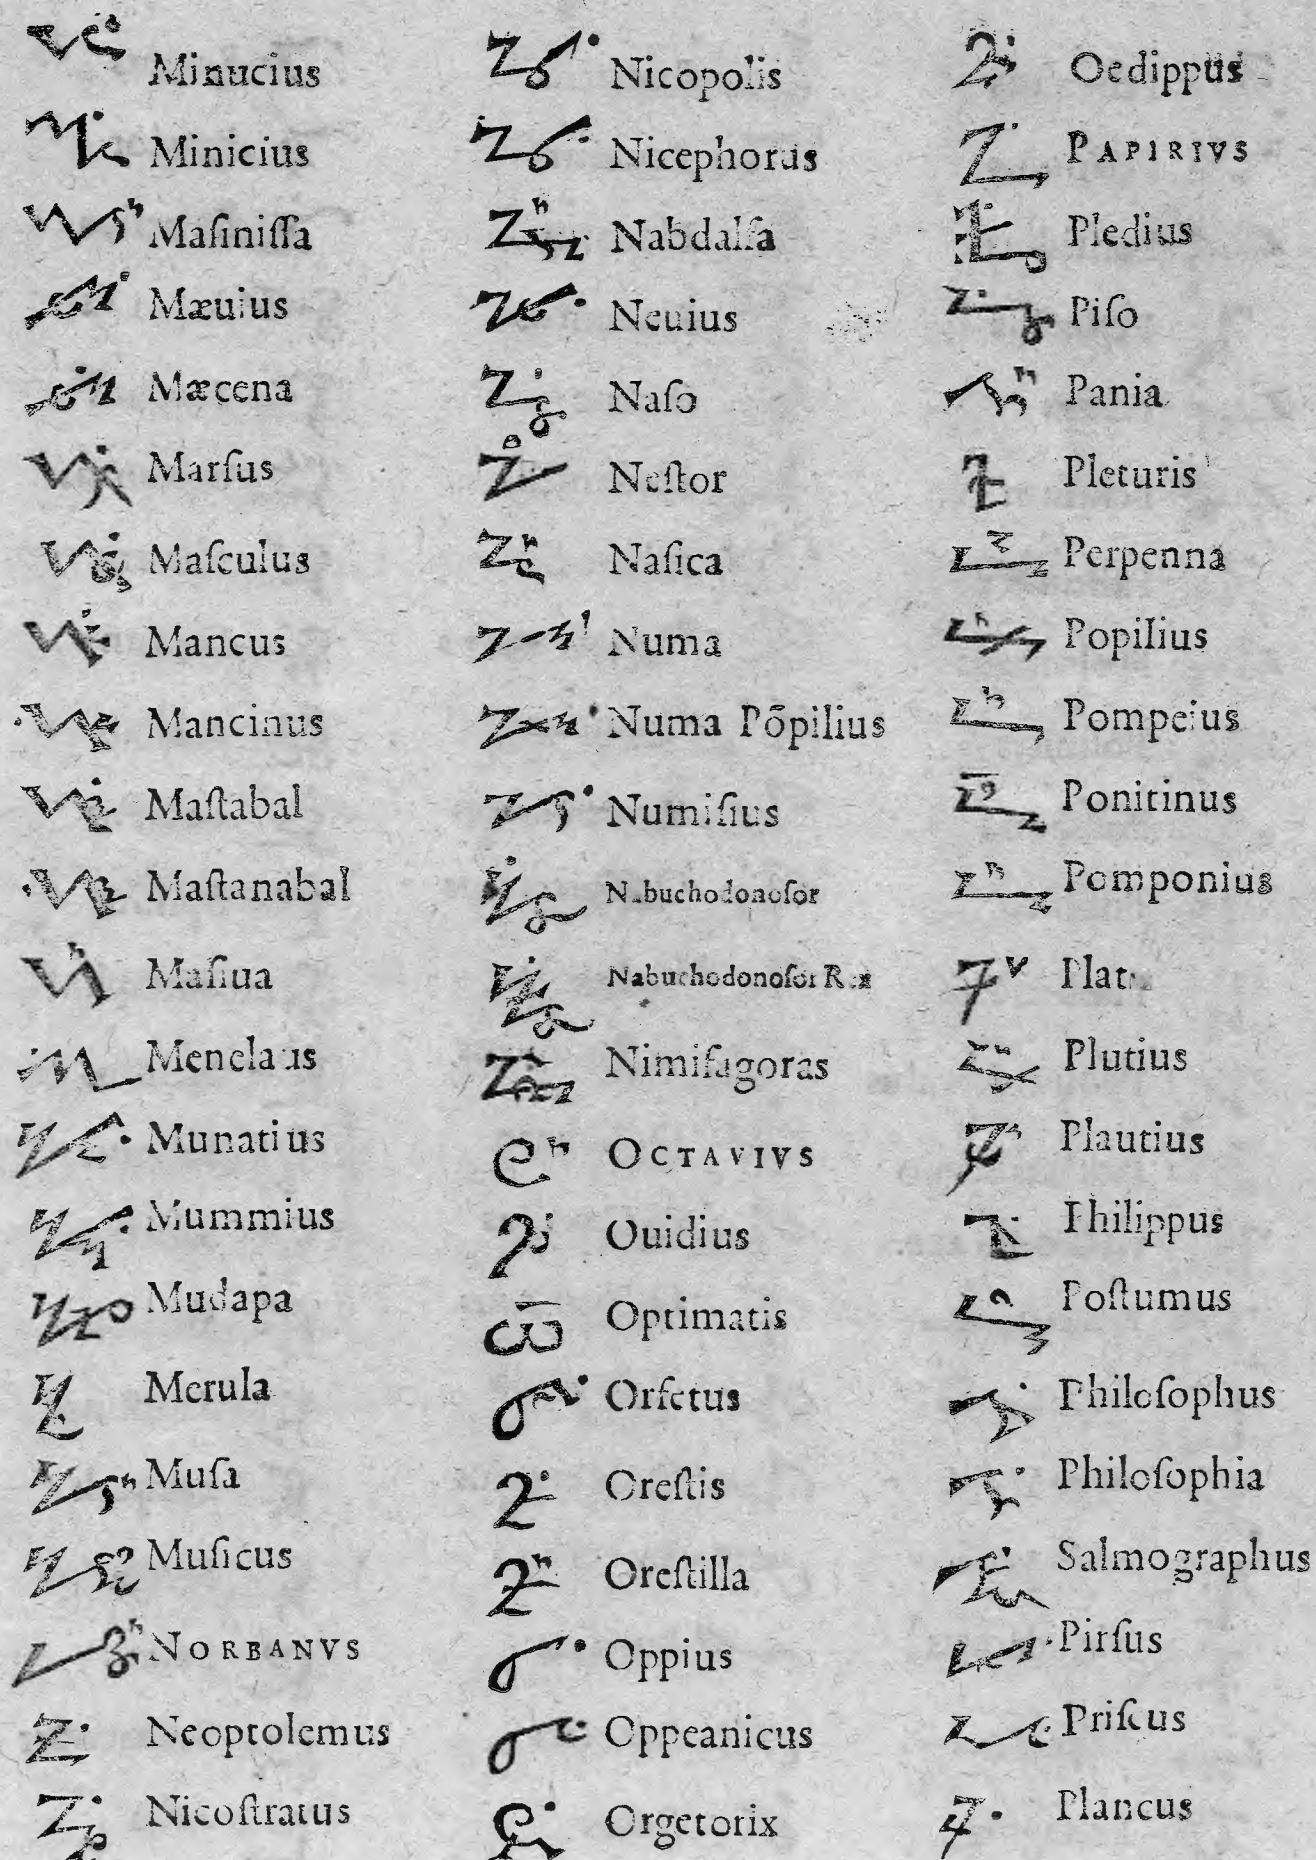 Minucius
Minicius
Maſiniſſa
Mæuius
Mæcena
Marſus
Maſculus
Mancus
Mancinus
Maſtabal
Maſtanabal
Maſiua
Menelaus
Munatius
Mummius
Mudapa
Merula
Muſa
Muſicus
NORBANVS
Neoptolemus
Nicoſtratus
Nicopolis
Nicephorus
Nabdalſa
Neuius
Naſo
Neſtor
Naſica
Numa
Numa Põpilius
Numiſius
Nabuchodonoſor
Nabuchodonoſor Rex
Nimiſagoras
OCTAVIVS
Ouidius
Optimatis
Orfetus
Oreſtis
Oreſtilla
Oppius
Oppeanicus
Orgetorix
Oedippus
PAPIRIVS
Pledius
Piſo
Pania
Pleturis
Perpenna
Popilius
Pompeius
Ponitinus
Pomponius
Plutius
Plautius
Philippus
Poſtumus
Philoſophus
Philoſophia
Salmographus
Pirſus
Priſcus
Plancus